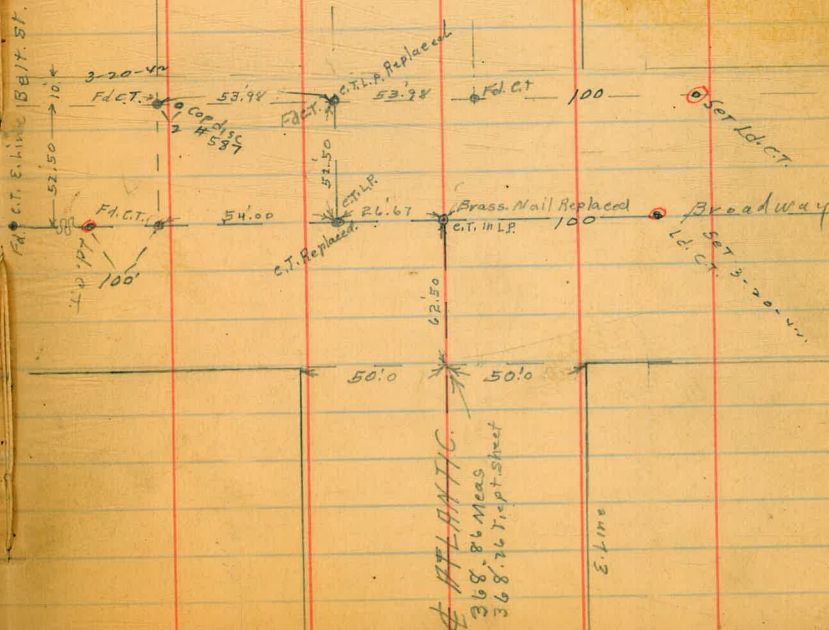 Fd. C.T. E. Line Belt. St.
10'
52.50
3-20-42
Fd. C.T.
Cop. disc
# 587
53.98
Fd C.T.
C.T. L.P. Replaced
53.98
Fd. C.T
100
Set Ld. C.T.
52.50
Fd. C.T.
Ld. C.T.
100'
54.00
C.T. L.P.
C.T. Replaced.
26.67
Brass. Nail Replaced
C.T. in L.P.
100
Broadway
Set 3-20-42
Ld. C.T.
62.50
50.'0
50.'0
ATLANTIC.
368.86 Meas
368.26
sheet
E. Line